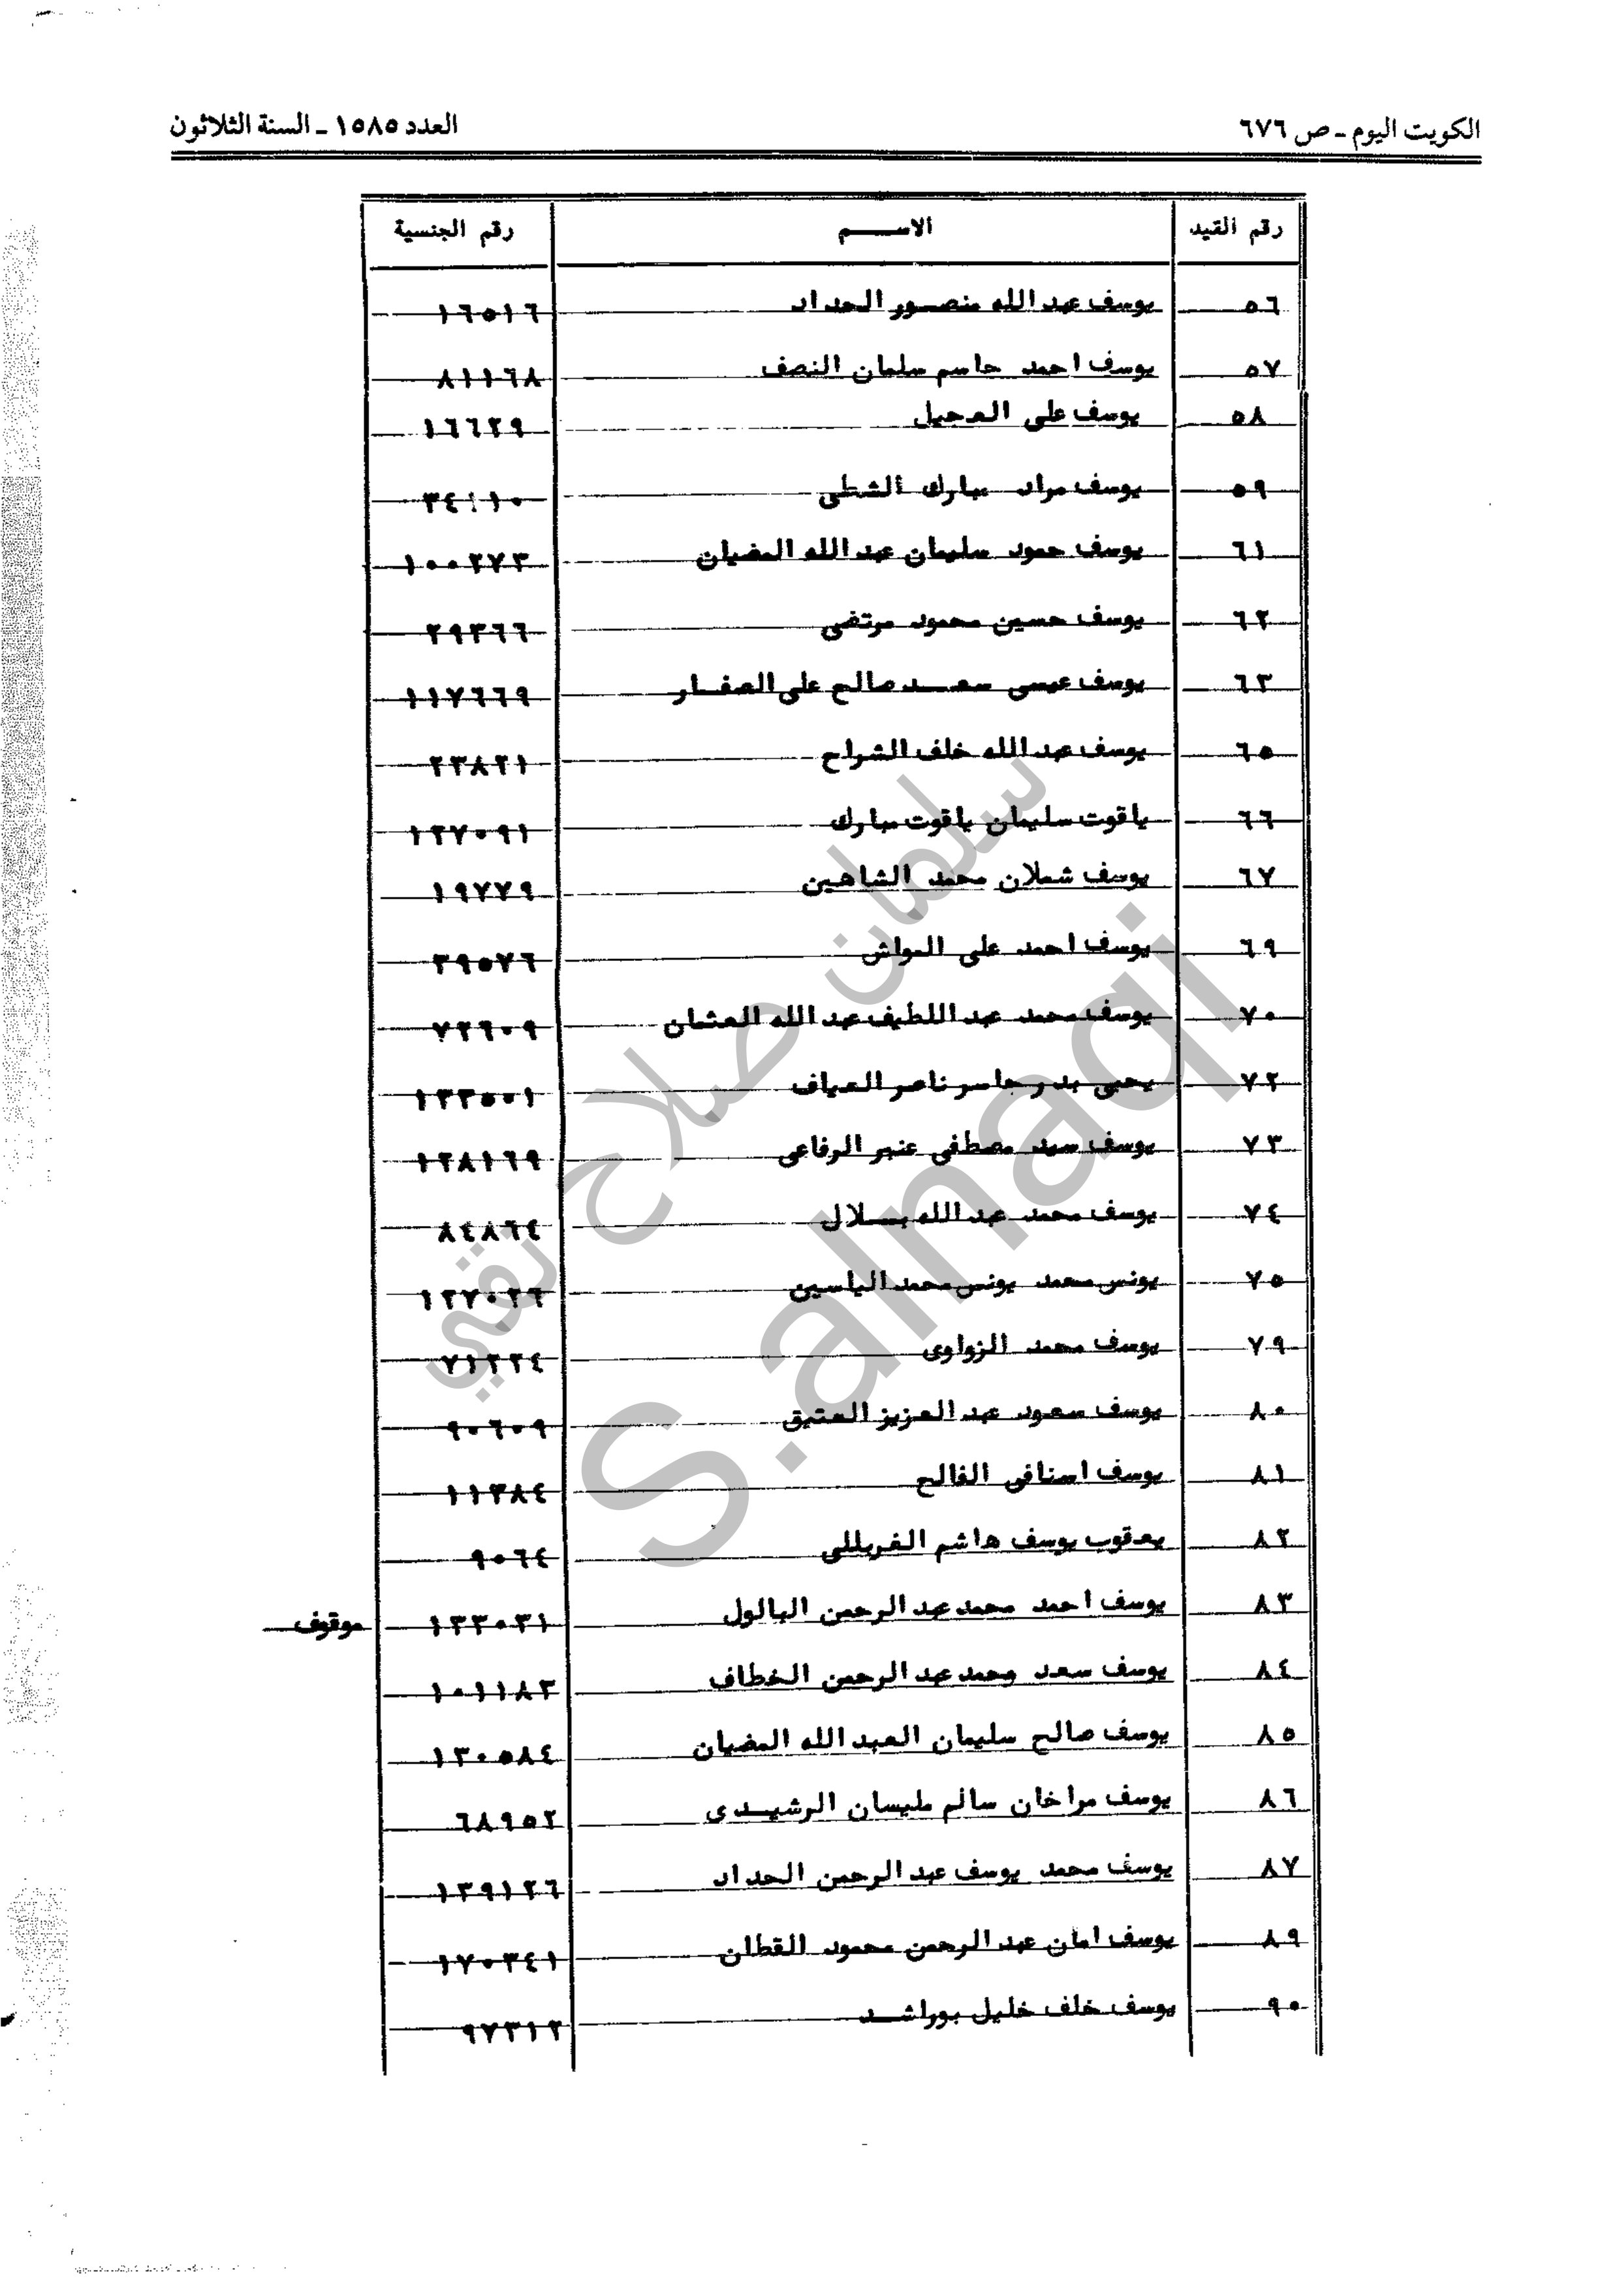 الكويت اليوم ـ ص ٦٧٦ العدد ١٥٨٥ ـ السنة الثلاثون
رقم القيد الاســـم رقم الجنسية
٥٦ يوسف عبد الله منصور الحداد ١٦٥١٦
٥٧ يوسف احمد جاسم سلمان النصف ٨١١٦٨
٥٨ يوسف على العجيل ١٦٦٢٩
٥٩ يوسف مراد مبارك الشطى
٦١ يوسف حمود سليمان عبد الله المضيان ١٠٠٢٧٣
٦٢ يوسف حسين محمود مرتضى ٢٩٣٦٦
٦٣ يوسف عيسى سعد صالح على الصفار ١١٧٦٦٩
٦٥ يوسف عبد الله خلف الشراح ٢٣٨٢١
٦٦ ياقوت سليمان ياقوت مبارك ١٢٧٠٩١
٦٧ يوسف شملان محمد الشاهين ١٩٧٧٩
٦٩ يوسف احمد على المواش ٣٩٥٧٦
٧٠ يوسف محمد عبد اللطيف عبد الله العثمان ٧٢٦٠٩
٧٢ يحيى بدر جاسر ناصر العياف
٧٣ يوسف سيد مصطفى عنبر الرفاعى ١٢٨١٦٩
٧٤ يوسف محمد عبد الله بسلال ٨٤٨٦٤
٧٥ يونس محمد يونس محمد الياسين ١٢٧٠٢٦
٧٩ يوسف محمد الزواوى ٧١٢٢٤
٨٠ يوسف سعود عبد العزيز العتيق ٩٠٦٠٩
٨١ يوسف اسنافى الفالح ١١٣٨٤
٨٢ يعقوب يوسف هاشم الغربللى ٩٠٦٤
٨٣ يوسف احمد محمد عبد الرحمن البالول ١٣٣٠٣١ موقوف
٨٤ يوسف سعد محمد عبد الرحمن الخطاف ١٠١١٨٣
٨٥ يوسف صالح سليمان العبد الله المضيان ١٣٠٥٨٤
٨٦ يوسف مراخان سالم مليسان الرشيدى ٦٨٩٥٢
٨٧ يوسف محمد يوسف عبد الرحمن الحداد ١٣٩١٢٦
٨٩ يوسف امان عبد الرحمن محمود القطان ١٧٠٣٤١
٩٠ يوسف خلف خليل بوراشد ٩٧٣١٢
سلمان صلاح نقي
S.alnaqi